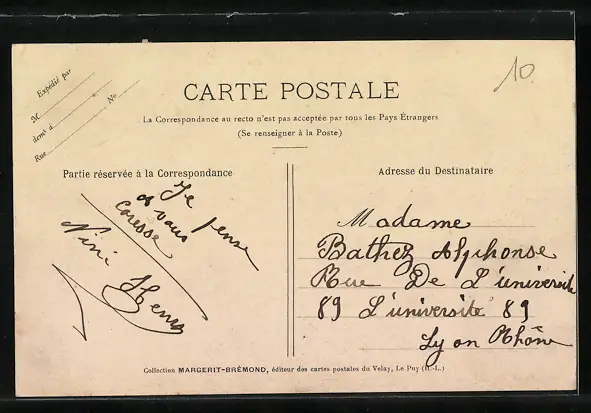 10
CARTE POSTALE
Expédié par
M
demt à
Rue No
La Correspondance au recto n'est pas acceptée par tous les Pays Étrangers
(Se renseigner à la Poste)
Partie réservée à la Correspondance
Je pense
a vous
caresse
Nini
Adresse du Destinataire
Madame
Bathez Alphonse
Rue De L'université
89 L'université 89
Lyon Rhône
Collection MARGERIT-BRÉMOND, éditeur des cartes postales du Velay, Le Puy (H.-L.)